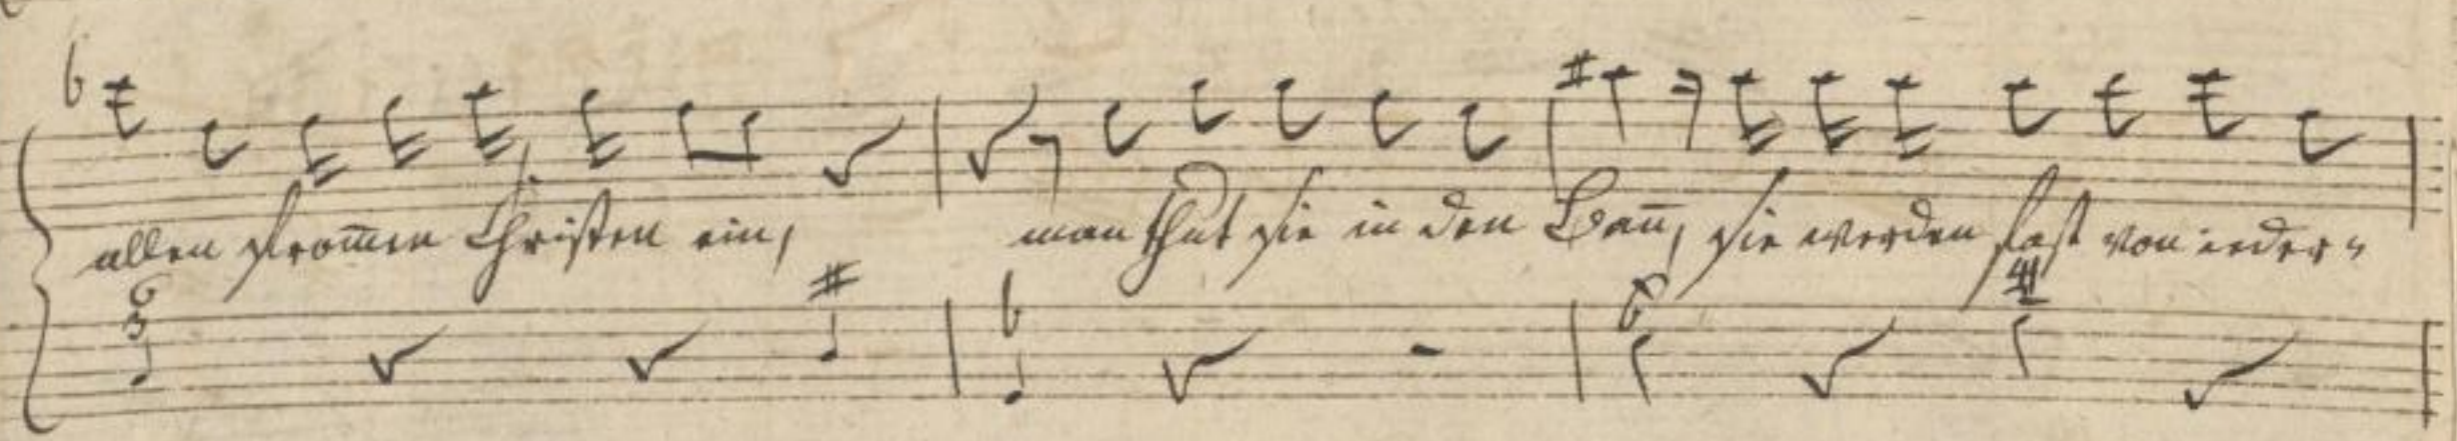 allen from̅en Christen ein, man thut sie in den Ban̅, sie werden fast von ieder=